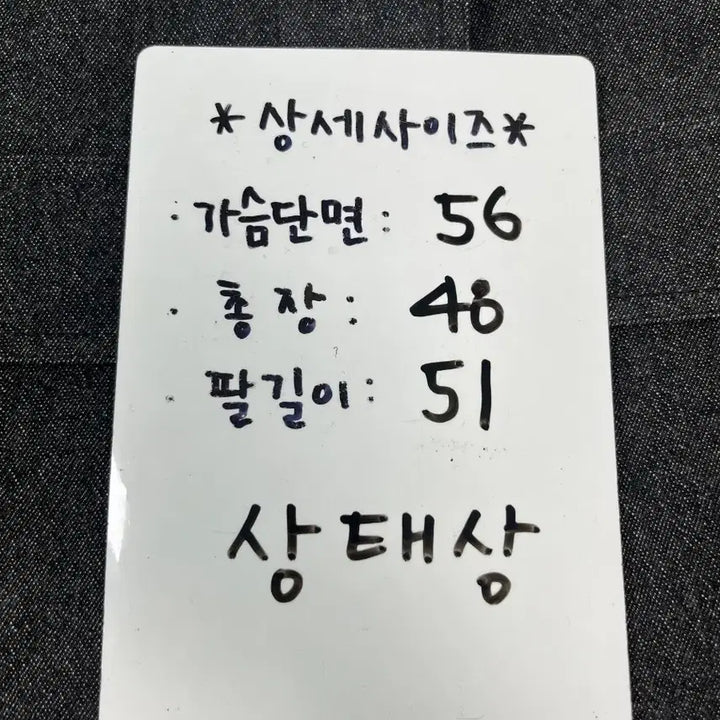 *상세사이즈*
· 가슴단면: 56
· 총장: 48
· 팔길이: 51
상태상